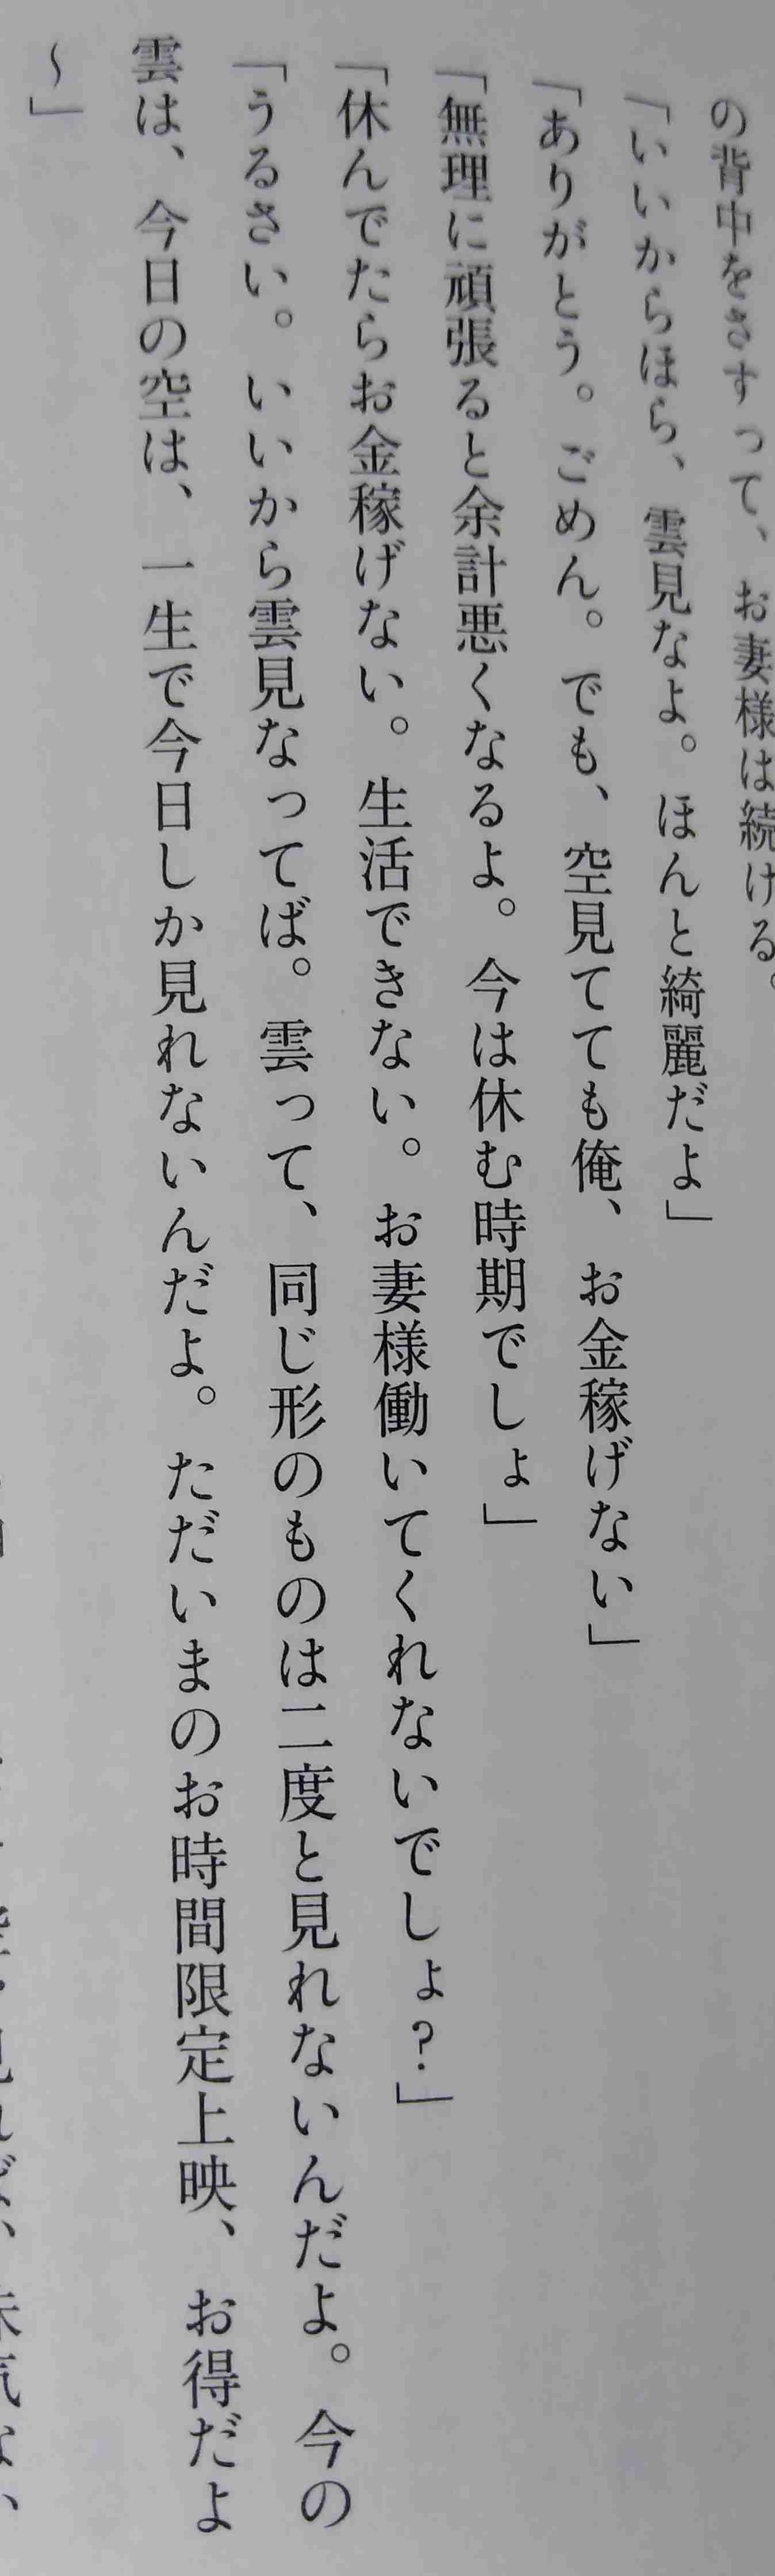 の背中をさすって、お妻様は続ける。
「いいからほら、雲見なよ。ほんと綺麗だよ」
「ありがとう。ごめん。でも、空見てても俺、お金稼げない」
「無理に頑張ると余計悪くなるよ。今は休む時期でしょ」
「休んでたらお金稼げない。生活できない。お妻様働いてくれないでしょ？」
「うるさい。いいから雲見なってば。雲って、同じ形のものは二度と見れないんだよ。今の
雲は、今日の空は、一生で今日しか見れないんだよ。ただいまのお時間限定上映、お得だよ
〜」